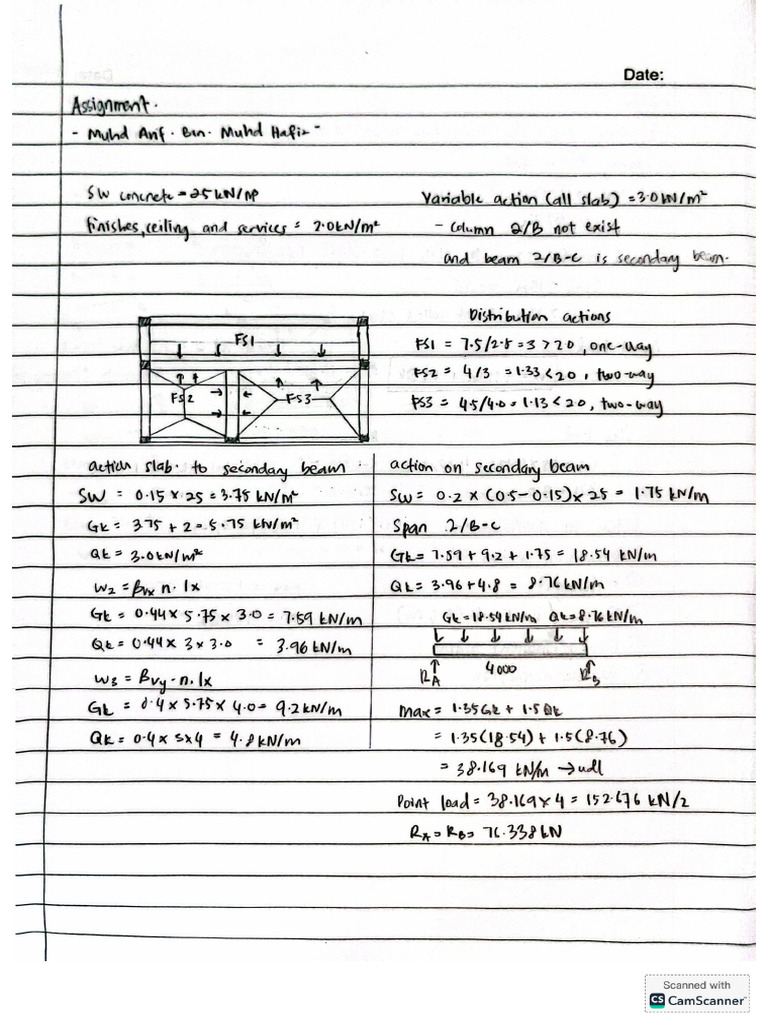 Date:
Assignment.
- Muhd Arif. Bin. Muhd Hafiz -
SW concrete = 25 kN/m³
Variable action (all slab) = 3.0 kN/m²
finishes, ceiling and services = 2.0 kN/m²
- Column 2/B not exist
and beam 2/B-C is secondary beam.
Distribution actions
FS1
FS1 = 7.5/2.5 = 3 > 20, one-way
FS2 = 4/3 = 1.33 < 20, two-way
FS2
FS3
FS3 = 4.5/4.0 = 1.13 < 20, two-way
action slab. to secondary beam.
SW = 0.15 x 25 = 3.75 kN/m²
Gk = 375 + 2 = 5.75 kN/m²
Qk = 3.0 kN/m²
W2 = βvx n. lx
Gk = 0.44 x 5.75 x 3.0 = 7.59 kN/m
Qk = 0.44 x 3 x 3.0 = 3.96 kN/m
W3 = βvy. n. lx
Gk = 0.4 x 5.75 x 4.0 = 9.2 kN/m
Qk = 0.4 x 3x4 = 4.8 kN/m
action on secondary beam
SW = 0.2 x (0.5 - 0.15) x 25 = 1.75 kN/m
Span 2/B-C
Gk = 7.59 + 9.2 + 1.75 = 18.54 kN/m
Qk = 3.96 + 4.8 = 8.76 kN/m
Gk = 18.54 kN/m Qk = 8.76 kN/m
4000
RA RB
Max = 1.35Gk + 1.5 Qk
= 1.35(18.54) + 1.5(8.76)
= 38.169 kN/m → udl
Point load = 38.169 x 4 = 152.676 kN/2
RA = RB = 76.338 kN
Scanned with
CS CamScanner